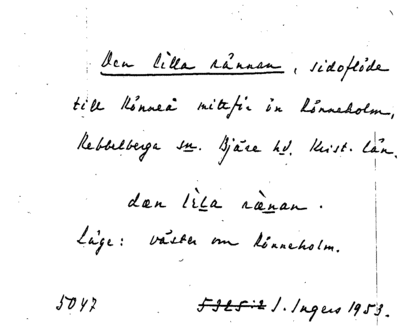 Den lilla rånnan, sidoflöde
till Rönneå mittför ön Rönneholm,
Rebbelberga sn. Bjäre hd. Krist. län.
dæn lɛ̀la ræ̀nan.
Läge: väster om Rönneholm.
5047 5325:2 I. Ingers 1953.